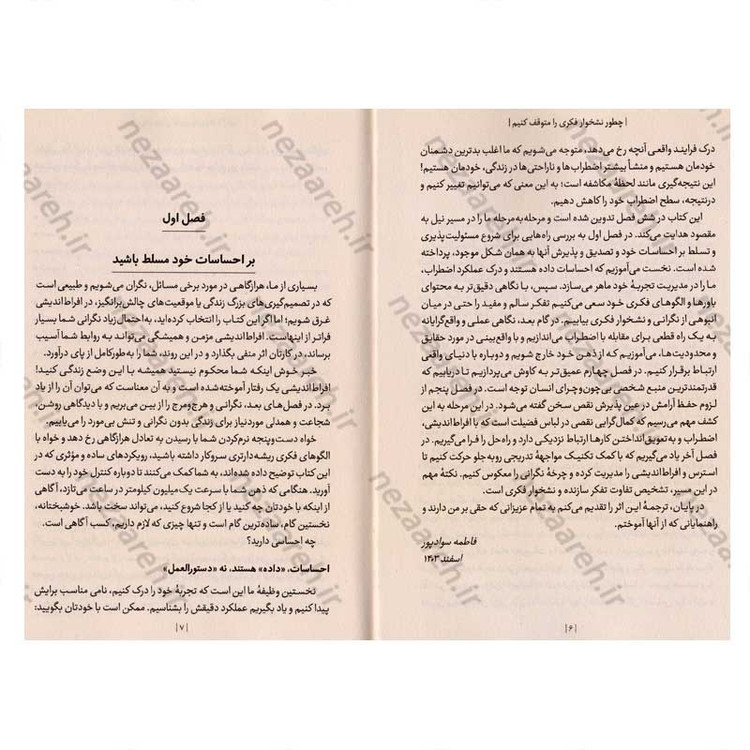 | چطور نشخوار فکری را متوقف کنیم |
درک فرایند واقعی آنچه رخ می‌دهد، متوجه می‌شویم که ما اغلب بدترین دشمنان
خودمان هستیم و منشأ بیشتر اضطراب‌ها و ناراحتی‌ها در زندگی، خودمان هستیم!
این نتیجه‌گیری مانند لحظهٔ مکاشفه است؛ به این معنی که می‌توانیم تغییر کنیم و
درنتیجه، سطح اضطراب خود را کاهش دهیم.
این کتاب در شش فصل تدوین شده است و مرحله‌به‌مرحله ما را در مسیر نیل به
مقصود هدایت می‌کند. در فصل اول به بررسی راه‌هایی برای شروع مسئولیت‌پذیری
و تسلط بر احساسات خود و تصدیق و پذیرش آنها به همان شکل موجود، پرداخته
شده است. نخست می‌آموزیم که احساسات داده هستند و درک عملکرد اضطراب،
ما را در مدیریت تجربهٔ خود ماهر می‌سازد. سپس، با نگاهی دقیق‌تر به محتوای
باورها و الگوهای فکری خود سعی می‌کنیم تفکر سالم و مفید را حتی در میان
انبوهی از نگرانی و نشخوار فکری بیابیم. در گام بعد، نگاهی عملی و واقع‌گرایانه
به یک راه قطعی برای مقابله با اضطراب می‌اندازیم و با واقع‌بینی در مورد حقایق
و محدودیت‌ها، می‌آموزیم که از ذهن خود خارج شویم و دوباره با دنیای واقعی
ارتباط برقرار کنیم. در فصل چهارم عمیق‌تر به کاوش می‌پردازیم تا دریابیم که
قدرتمندترین منبع شخصی بی‌چون‌وچرای انسان توجه است. در فصل پنجم از
لزوم حفظ آرامش در عین پذیرش نقص سخن گفته می‌شود. در این مرحله به این
کشف مهم می‌رسیم که کمال‌گرایی نقصی در لباس فضیلت است که با افراط‌اندیشی،
اضطراب و به‌تعویق‌انداختن کارها ارتباط نزدیکی دارد و راه‌حل را فرا می‌گیریم. در
فصل آخر یاد می‌گیریم که با کمک تکنیک مواجههٔ تدریجی روبه‌جلو حرکت کنیم تا
استرس و افراط‌اندیشی را مدیریت کرده و چرخهٔ نگرانی را معکوس کنیم. نکتهٔ مهم
در این مسیر، تشخیص تفاوت تفکر سازنده و نشخوار فکری است.
در پایان، ترجمهٔ این اثر را تقدیم می‌کنم به تمام عزیزانی که حقی بر من دارند و
راهنمایانی که از آنها آموختم.
فاطمه سوادپور
اسفند ۱۴۰۳
| ۶ |
فصل اول
بر احساسات خود مسلط باشید
بسیاری از ما، هرازگاهی در مورد برخی مسائل، نگران می‌شویم و طبیعی است
که در تصمیم‌گیری‌های بزرگ زندگی یا موقعیت‌های چالش‌برانگیز، در افراط‌اندیشی
غرق شویم؛ اما اگر این کتاب را انتخاب کرده‌اید، به‌احتمال‌زیاد نگرانی شما بسیار
فراتر از اینهاست. افراط‌اندیشی مزمن و همیشگی می‌تواند به روابط شما آسیب
برساند، در کارتان اثر منفی بگذارد و در این روند، شما را به‌طورکامل از پای درآورد.
خبر خوش اینکه شما محکوم نیستید همیشه با این وضع زندگی کنید!
افراط‌اندیشی یک رفتار آموخته‌شده است و به آن معناست که می‌توان آن را از یاد
برد. در فصل‌های بعد، نگرانی و هرج‌ومرج را از بین می‌بریم و با دیدگاهی روشن،
شجاعت و همدلی موردنیاز برای زندگی بدون نگرانی و تنش بی‌مورد را می‌یابیم.
خواه دست‌وپنجه نرم‌کردن شما با رسیدن به تعادل هرازگاهی رخ دهد و خواه با
الگوهای فکری ریشه‌دارتری سروکار داشته باشید، رویکردهای ساده و مؤثری که در
این کتاب توضیح داده شده‌اند، به‌شما کمک می‌کنند تا دوباره کنترل خود را به دست
آورید. هنگامی که ذهن شما با سرعت یک‌میلیون کیلومتر در ساعت می‌تازد، آگاهی
از اینکه با خودتان چه کنید یا از کجا شروع کنید، می‌تواند سخت باشد. خوشبختانه،
نخستین گام، ساده‌ترین گام است و تنها چیزی که لازم داریم، کسب آگاهی است.
چه احساسی دارید؟
احساسات، «داده» هستند، نه «دستورالعمل»
نخستین وظیفهٔ ما این است که تجربهٔ خود را درک کنیم، نامی مناسب برایش
پیدا کنیم و یاد بگیریم عملکرد دقیقش را بشناسیم. ممکن است با خودتان بگویید:
| ۷ |
nezaareh.ir
nezaareh.ir
nezaareh.ir
nezaareh.ir
nezaareh.ir
nezaareh.ir
nezaareh.ir